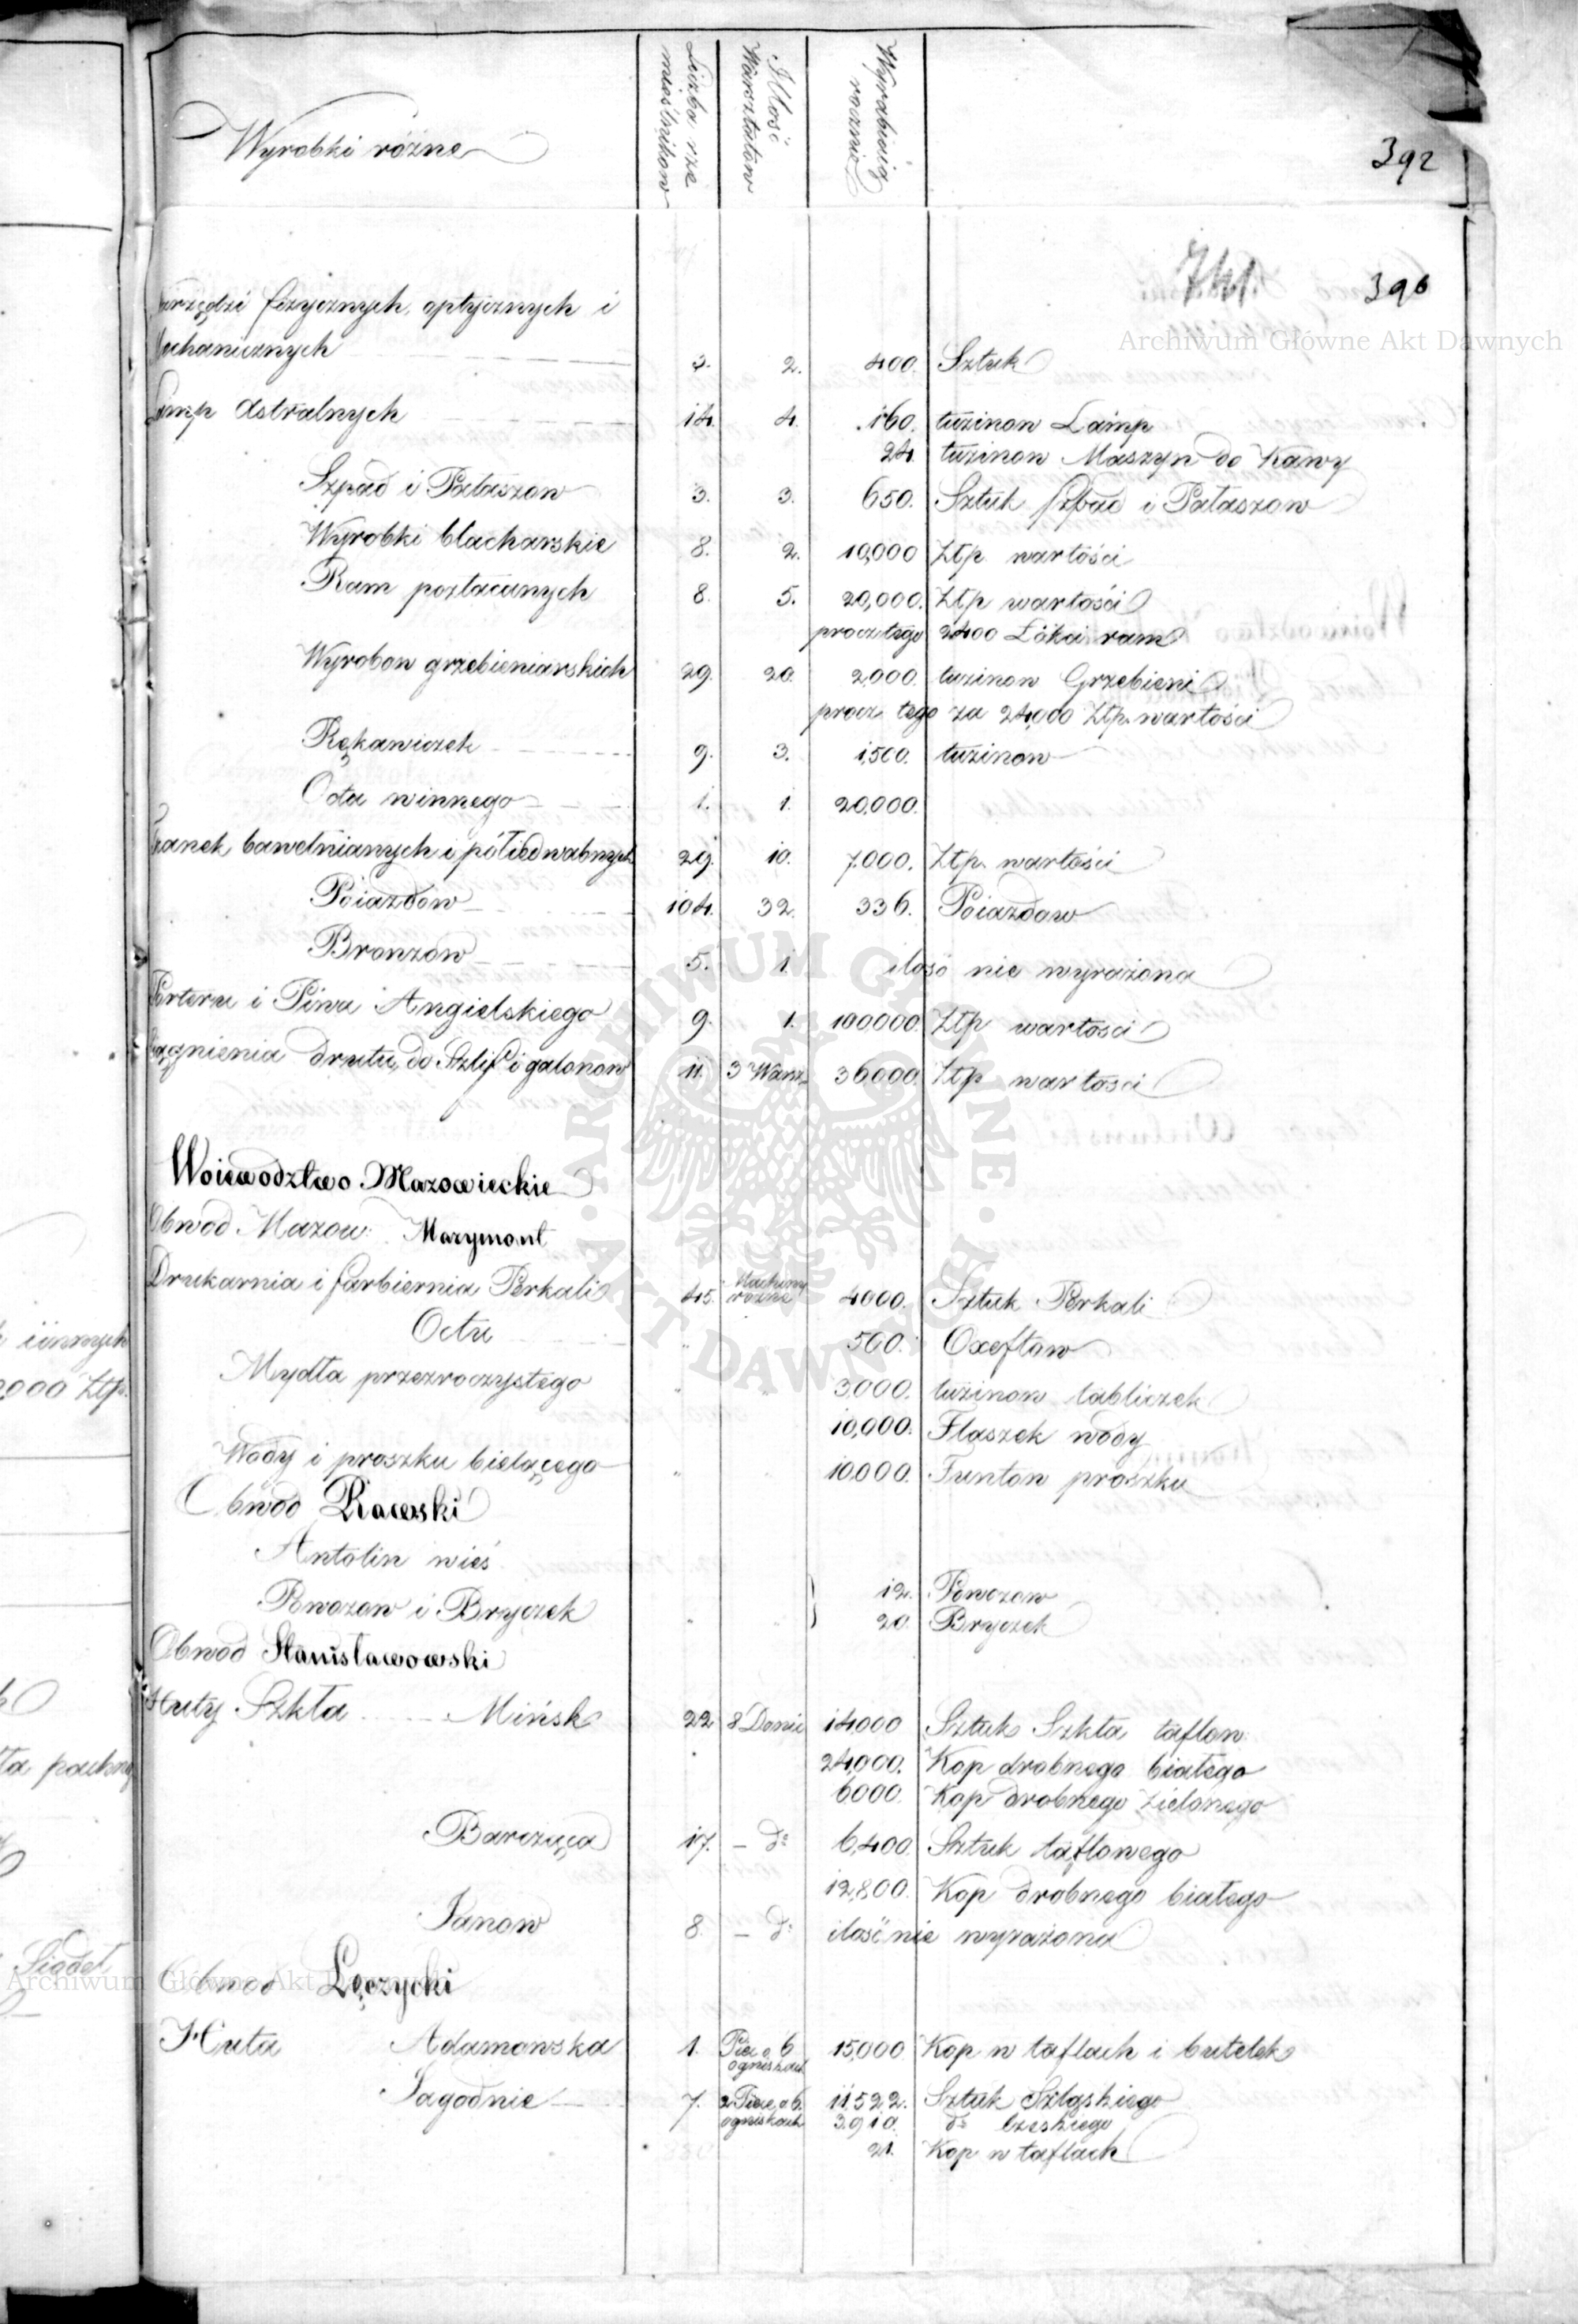 Wyrobki różne
Liczba rze
mieślnikow
Illość
Warsztatow
Wyrabiaią
rocznie
392
741.
396
Archiwum Główne Akt Dawnych
Narzędzi fizycznych, optycznych i
Mechanicznych 3. 2. 400. Sztuk
Lamp Astralnych 14. 4. 160. tuzinow Lamp
24. tuzinow Maszyn do Kawy
Szpad i Pałaszow 3. 3. 650. Sztuk Szpad i Pałaszow
Wyrobki blacharskie 8. 2. 10,000 Złp wartości
Ram pozłacanych 8. 5. 20,000. Złp wartości
procz tego 2400 Łokci ram
Wyrobow grzebieniarskich 29. 20. 2,000. tuzinow Grzebieni
procz tego za 24,000 Złp. wartości
Rękawiczek 9. 3. 1,500. tuzinow
Octu winnego 1. 1. 20,000.
bawełnianych i półiedwabnych 29. 10. 7,000. Złp. wartości
Poiazdow 104. 32. 336. Poiazdow
Bronzow 5. 1. ilość nie wyrażona
Porteru i Piwa Angielskiego 9. 1. 100000. Złp wartosci
Ciągnienia drutu, do Szlif i galonow 11. 3 Warsz. 36000. Złp wartosci
Woiewodztwo Mazowieckie
Obwod Mazow: Marymont
Drukarnia i farbiernia Perkali 45. Machiny
rozne 4000. Sztuk Perkali
Octu " 500. Oxeftow
Mydła przezroczystego " " 3,000. tuzinow tabliczek
10,000. Flaszek wody
Wody i proszku bielącego " " 10,000. Funtow proszku
Obwod Rawski
Antolin wieś
12. Powozow
Powozow i Bryczek " " 20. Bryczek
Obwod Stanisławowski
Huty Szkła Mińsk 22 8 Donic 14,000 Sztuk Szkła taflow:
24,000. Kop drobnego białego
6000. Kop drobnego zielonego
Barcząca 17. — do 6,400. Sztuk taflowego
12,800. Kop drobnego białego
Janow 8. — do ilość nie wyrażona
Obwod Łęczycki
Archiwum Główne Akt Dawnych
Huta Adamowska 1. Piec o 6
ogniskach 15,000 Kop w taflach i butelek
Jagodnie 7. 2 Piece o 6. 11,522. Sztuk Szląskiego
ogniskach 3,910. do Czeskiego
21. Kop w taflach
innych
000 Złp.
ARCHIWUM GŁÓWNE · AKT DAWNYCH ·